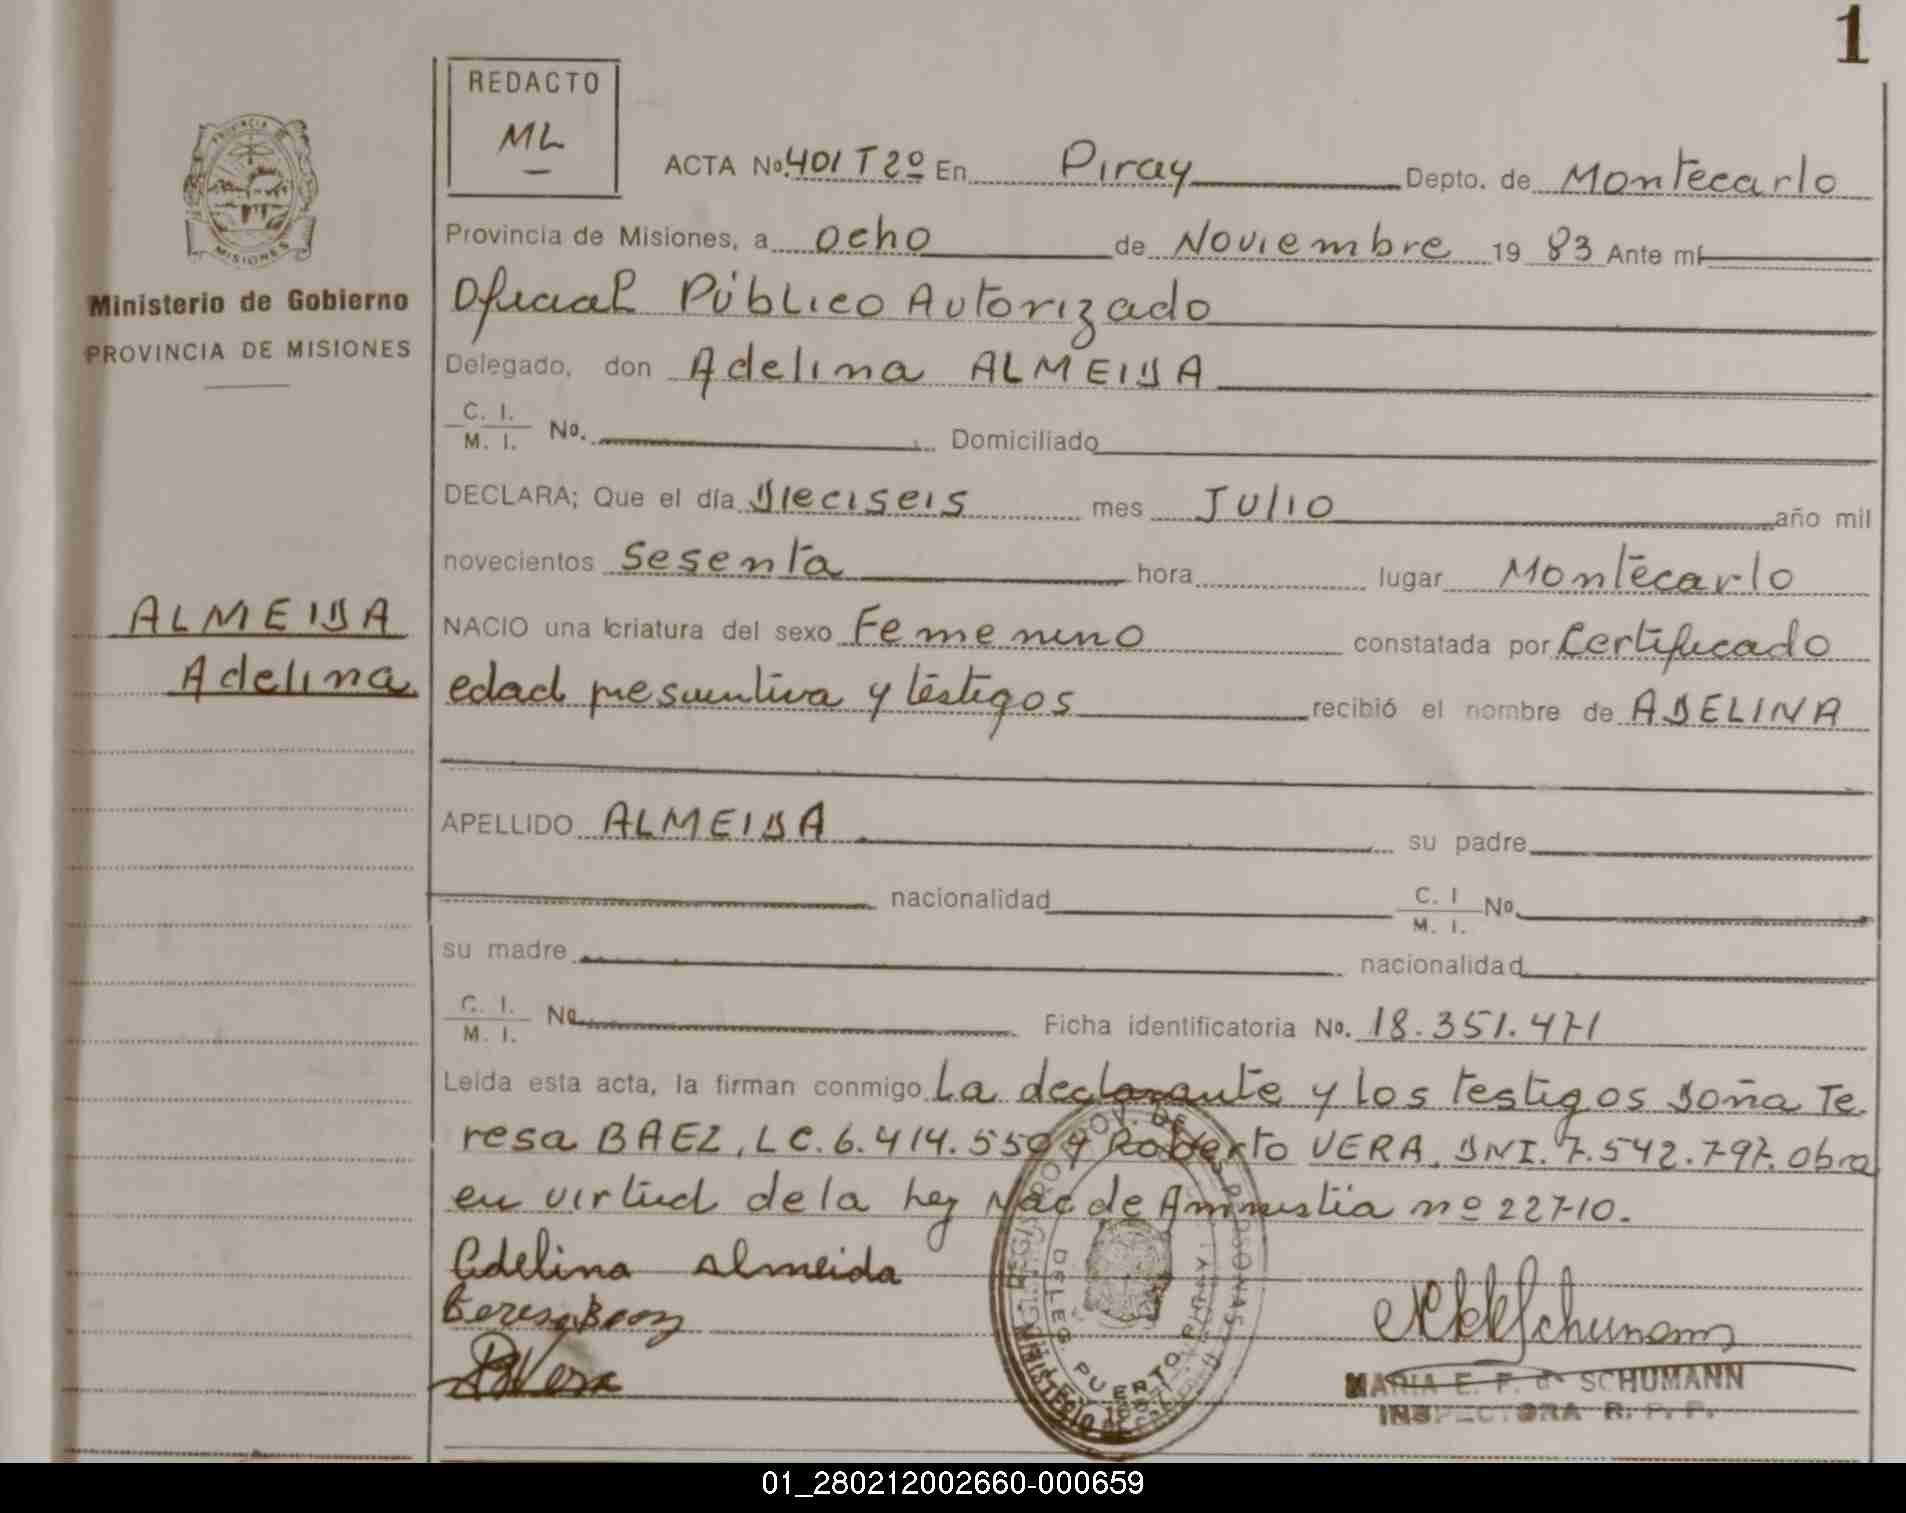 1
REDACTO
ML
PROVINCIA DE
MISIONES
Ministerio de Gobierno
PROVINCIA DE MISIONES
ALMEIDA
Adelina
ACTA No. 401 T 2º En Piray Depto. de Montecarlo
Provincia de Misiones, a ocho de Noviembre 19 83 Ante mí
Oficial Público Autorizado
Delegado, don Adelina ALMEIDA
C. I.
M. I. No. Domiciliado
DECLARA; Que el día Dieciseis mes Julio año mil
novecientos Sesenta hora lugar Montecarlo
NACIO una criatura del sexo Femenino constatada por Certificado
edad presuntiva y testigos recibió el nombre de ADELINA
APELLIDO ALMEIDA su padre
nacionalidad C. I
M. I. No.
su madre nacionalidad
C. I.
M. I. No Ficha identificatoria No. 18.351.471
Leída esta acta, la firman conmigo La declarante y los testigos Doña Te
resa BAEZ, LC. 6.414.550 y Roberto VERA. DNI. 7.542.797. Obra
en virtud de la Ley Nac de Amnistía nº 22710.
Adelina Almeida
Teresa Baez
Vera
Schumann
MARIA E. F. d SCHUMANN
INSPECTORA R. P. P.
DELEG. PUERTO PIRAY
MINISTERIO DE
01_280212002660-000659